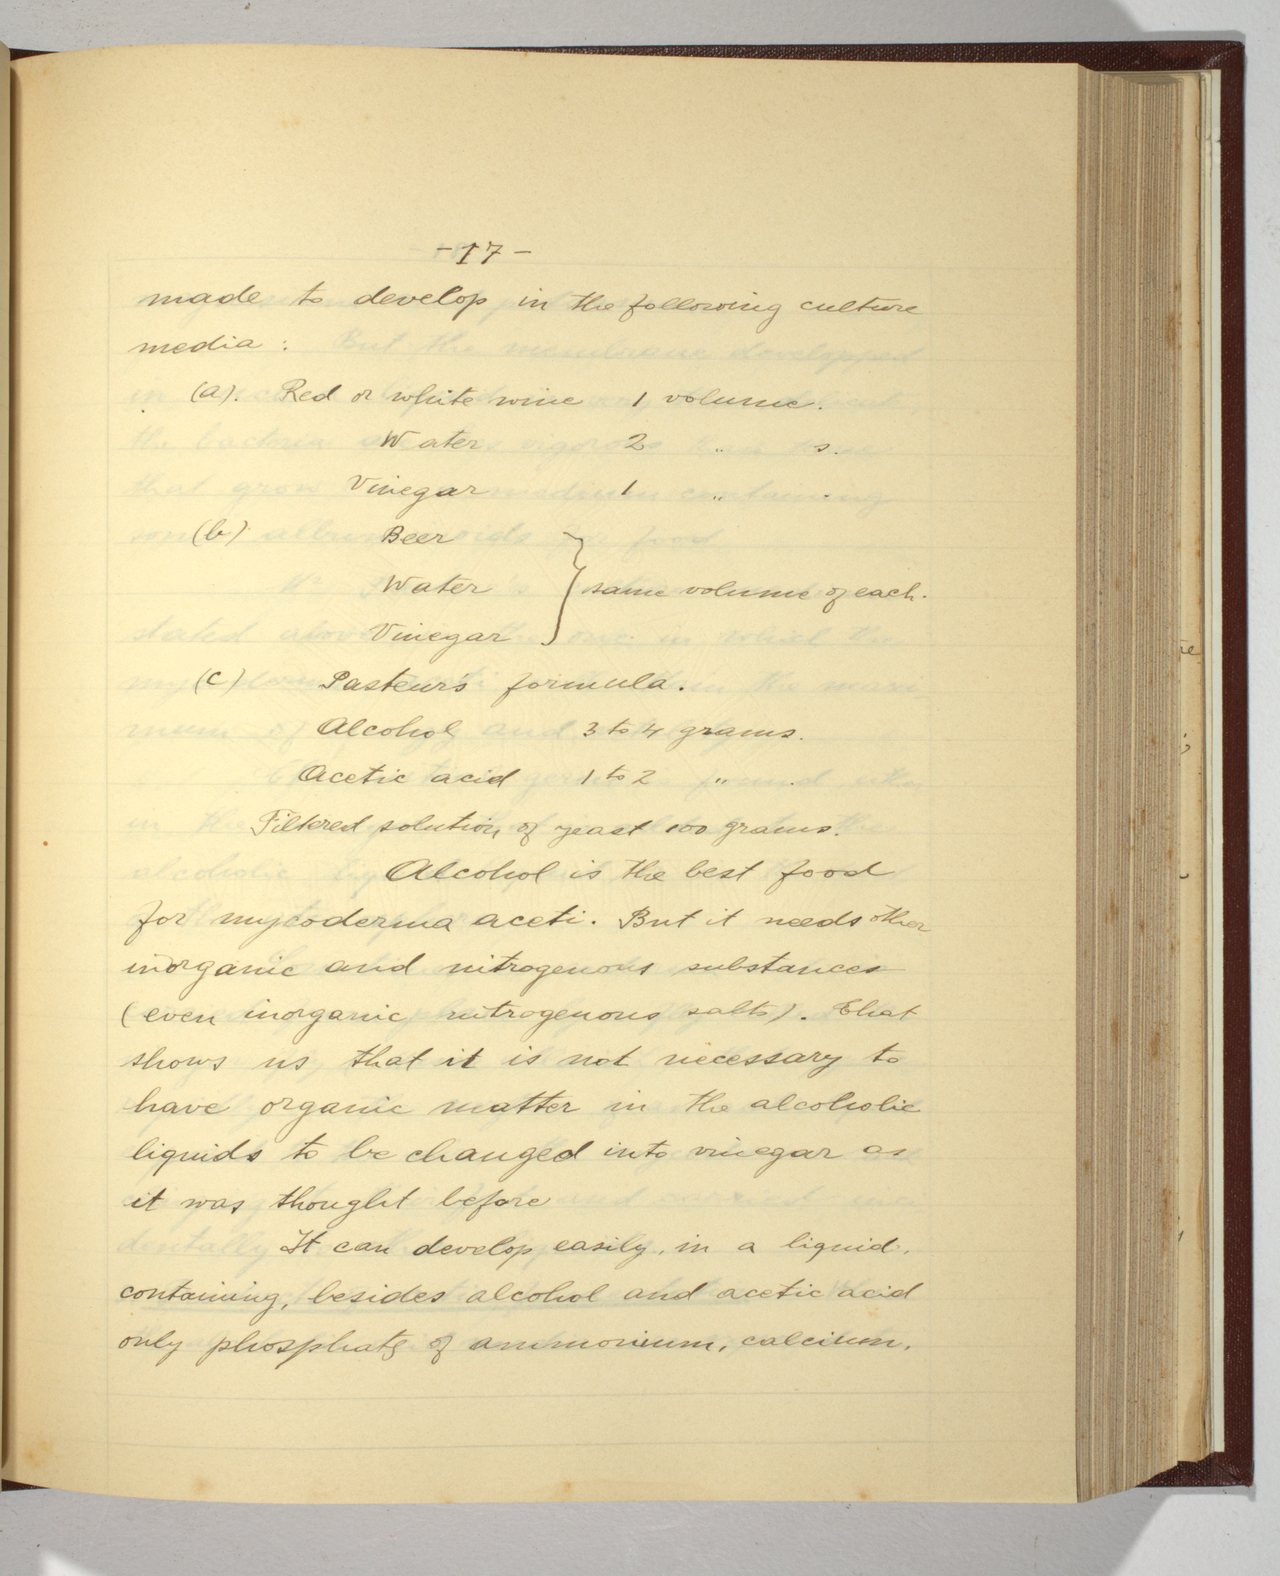 -17-
made to develop in the following culture
media :
(a). Red or white wine 1 volume.
Water 2 " s.
Vinegar 1 " .
(b) Beer
Water } same volume of each.
Vinegar
(c) Pasteur's formula.
Alcohol 3 to 4 grams.
Acetic acid 1 to 2 " .
Filtered solution of yeast 100 grams.
Alcohol is the best food
for mycoderma aceti. But it needs other
inorganic and nitrogenous substances
(even inorganic nitrogenous salts). That
shows us, that it is not necessary to
have organic matter in the alcoholic
liquids to be changed into vinegar as
it was thought before
It can develop easily, in a liquid,
containing, besides alcohol and acetic acid
only phosphate of ammonium, calcium,